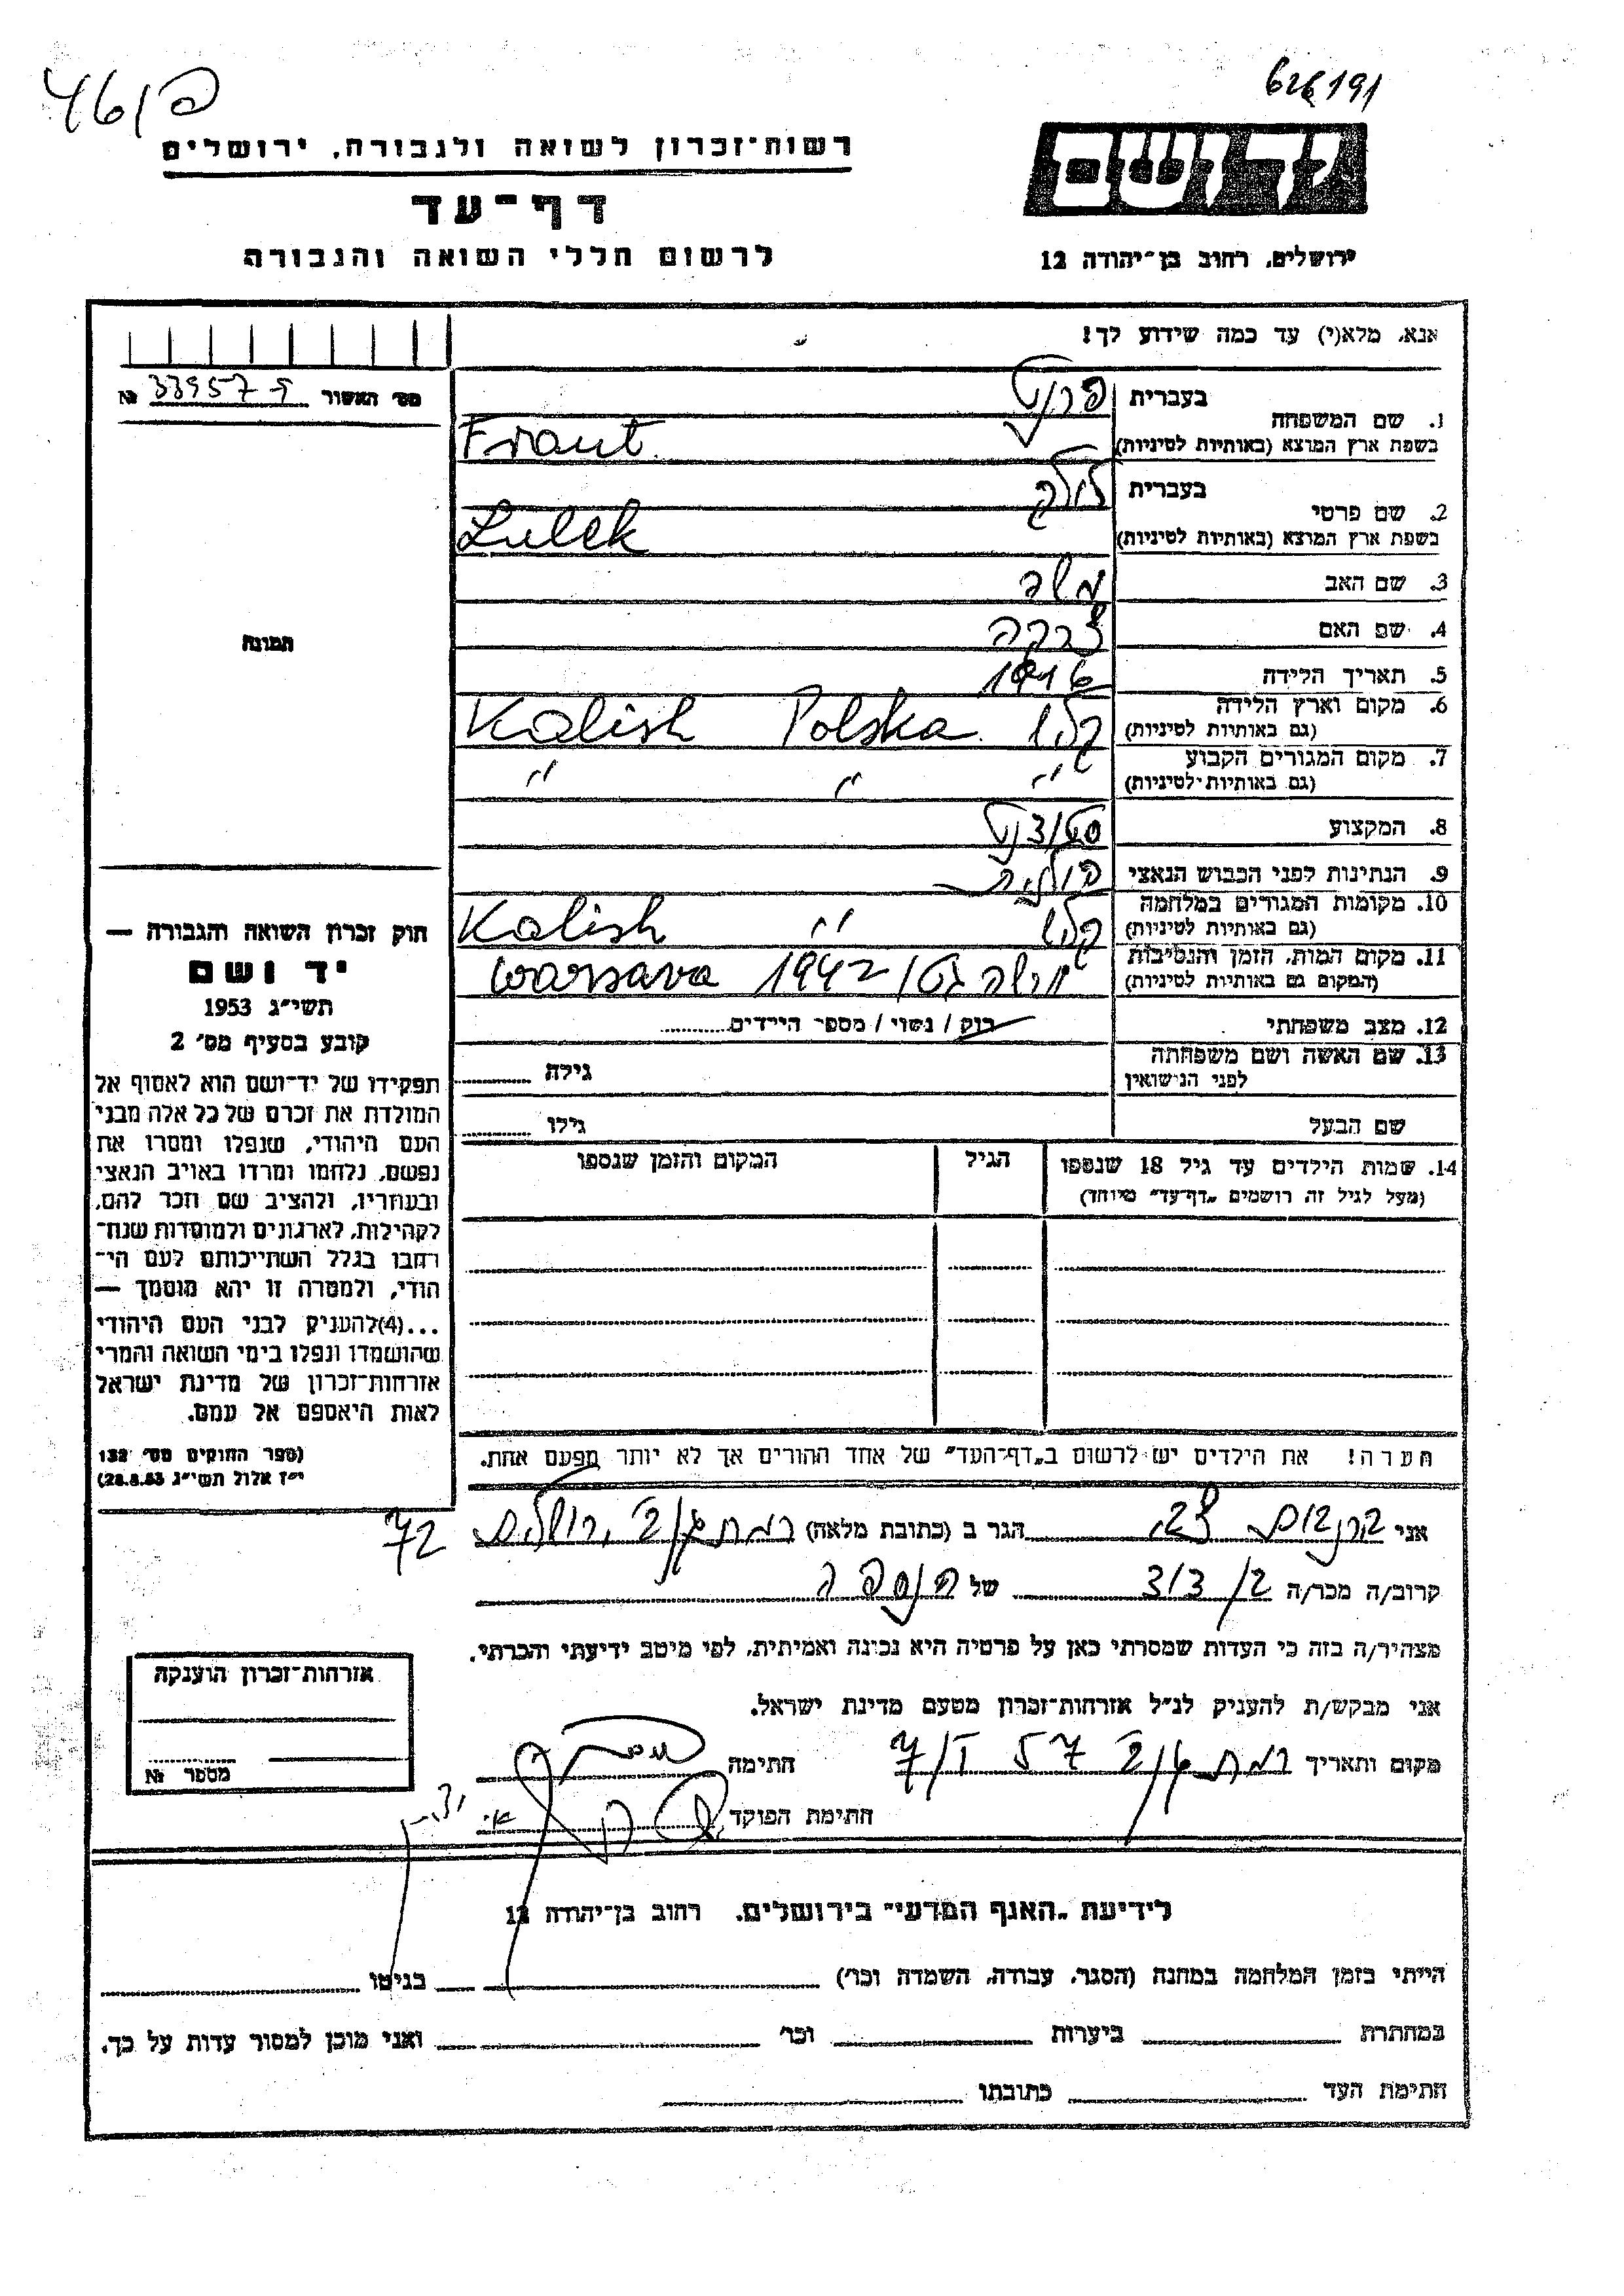 626191
46/פ
רשות־זכרון לשואה ולגבורה, ירושלים
דף־עד
לרשום חללי השואה והגבורה
יד ושם
ירושלים, רחוב בן־יהודה 12
אנא, מלא(י) עד כמה שידוע לך!
מס׳ האשור № 33957
1. שם המשפחה בעברית
בשפת ארץ המוצא (באותיות לטיניות) Fraut
2. שם פרטי בעברית לולק
בשפת ארץ המוצא (באותיות לטיניות) Lulek
3. שם האב משה
4. שם האם רבקה
5. תאריך הלידה 1916
6. מקום וארץ הלידה
(גם באותיות לטיניות) Kalish Polska
7. מקום המגורים הקבוע
(גם באותיות לטיניות) " " "
8. המקצוע סטודנט
9. הנתינות לפני הכבוש הנאצי פולנית
10. מקומות המגורים במלחמה
(גם באותיות לטיניות) Kalish "
11. מקום המות, הזמן והנסיבות
(המקום גם באותיות לטיניות) ורשה גטו 1942 Warsava
12. מצב משפחתי רוק / נשוי / מספר הילדים
13. שם האשה ושם משפחתה
לפני הנישואין גילה
שם הבעל גילו
14. שמות הילדים עד גיל 18 שנספו הגיל המקום והזמן שנספו
(מעל לגיל זה רושמים „דף־עד" מיוחד)
הערה! את הילדים יש לרשום ב„דף־העד" של אחד ההורים אך לא יותר מפעם אחת.
התמונה
חוק זכרון השואה והגבורה —
יד ושם
תשי״ג 1953
קובע בסעיף מס׳ 2
תפקידו של יד־ושם הוא לאסוף אל
המולדת את זכרם של כל אלה מבני
העם היהודי, שנפלו ומסרו את
נפשם, נלחמו ומרדו באויב הנאצי
ובעוזריו, ולהציב שם וזכר להם,
לקהילות, לארגונים ולמוסדות שנח־
רבו בגלל השתייכותם לעם הי־
הודי, ולמטרה זו יהא מוסמך —
...(4)להעניק לבני העם היהודי
שהושמדו ונפלו בימי השואה והמרי
אזרחות־זכרון של מדינת ישראל
לאות היאספם אל עמם.
(ספר החוקים מס׳ 132
י״ז אלול תשי״ג 28.8.53)
אני הגר ב (כתובת מלאה) רמת גן ירושלים 72
קרוב/ה מכר/ה בן דוד של הנספה
מצהיר/ה בזה כי העדות שמסרתי כאן על פרטיה היא נכונה ואמיתית, לפי מיטב ידיעתי והכרתי.
אני מבקש/ת להעניק לנ״ל אזרחות־זכרון מטעם מדינת ישראל.
מקום ותאריך רמת גן 7/I 57 חתימה
חתימת הפוקד
אזרחות־זכרון הוענקה
מספר №
לידיעת „האגף המדעי" בירושלים, רחוב בן־יהודה 12
הייתי בזמן המלחמה במחנה (הסגר, עבודה, השמדה וכו׳) בגיטו
במחתרת ביערות וכו׳ ואני מוכן למסור עדות על כך.
חתימת העד כתובתו